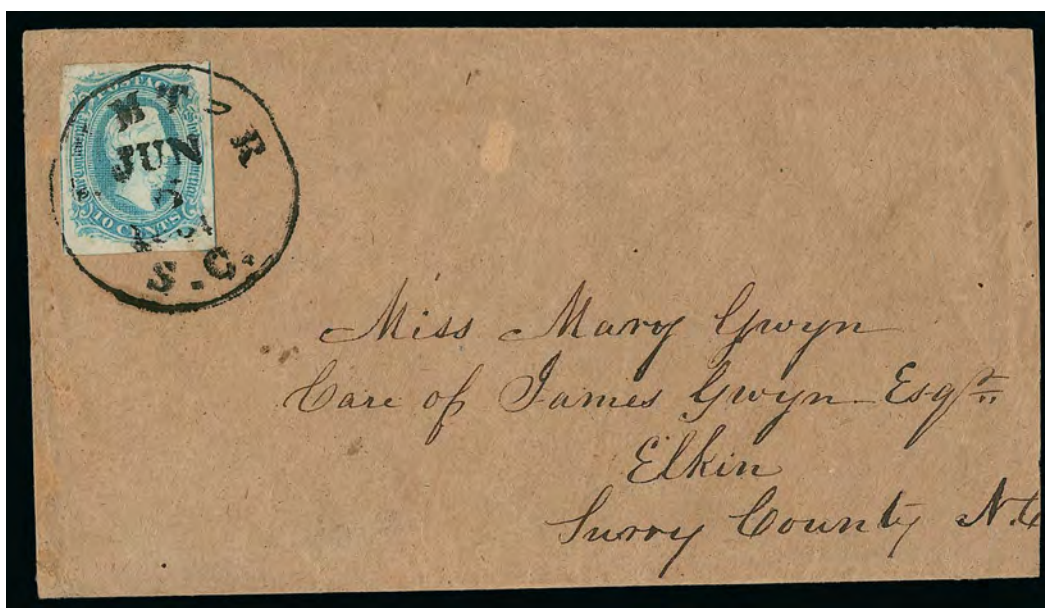 POSTAGE
10 CENTS
MTOR
JUN
S.C.
Miss Mary Gwyn
Care of James Gwyn Esqr.
Elkin
Surry County N.C